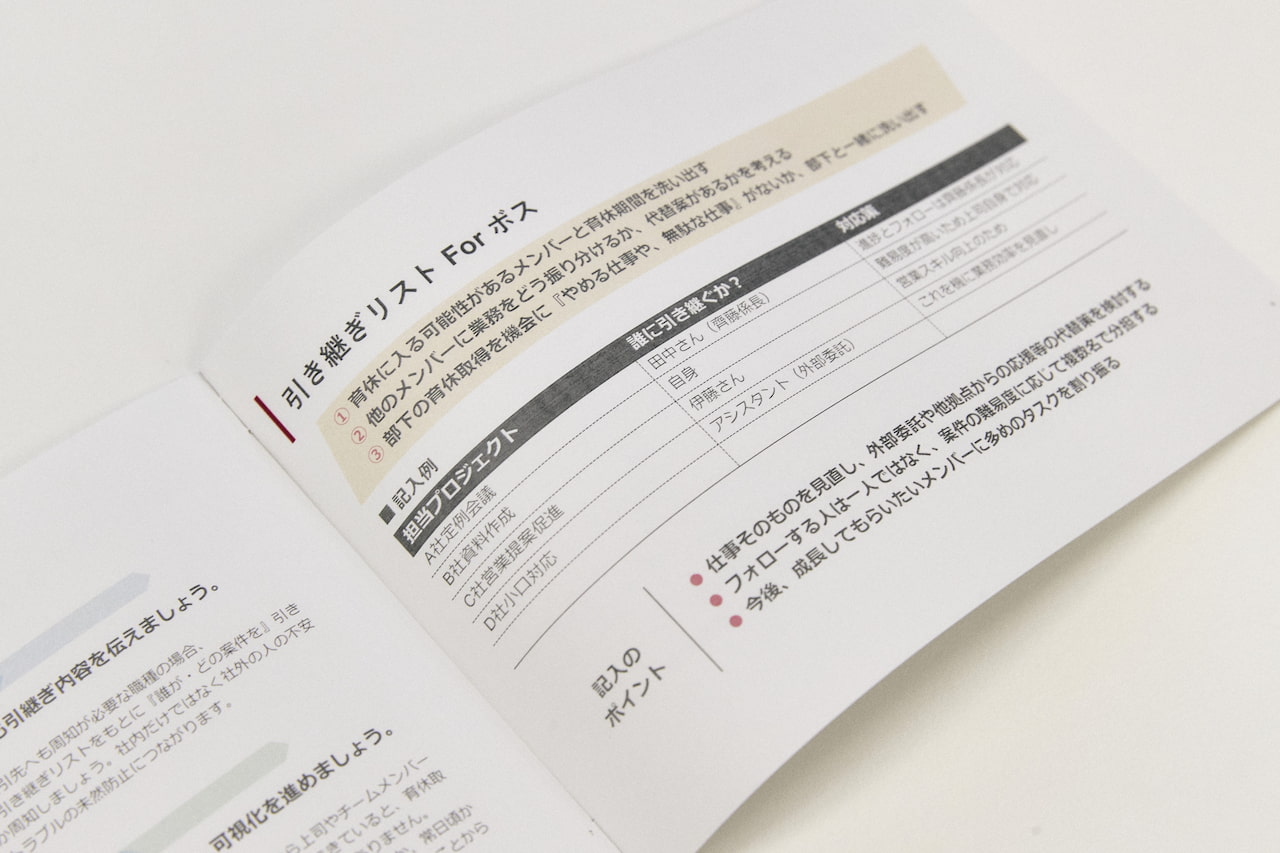 引き継ぎ内容を伝えましょう。
引先へも周知が必要な職種の場合、
引き継ぎリストをもとに『誰が・どの案件を』引き
か周知しましょう。社内だけではなく社外の人の不安
ラブルの未然防止につながります。
可視化を進めましょう。
ら上司やチームメンバー
きていると、育休取
ありません。
か。常日頃か
ことから
引き継ぎリスト For ボス
① 育休に入る可能性があるメンバーと育休期間を洗い出す
② 他のメンバーに業務をどう振り分けるか、代替案があるかを考える
③ 部下の育休取得を機会に『やめる仕事や、無駄な仕事』がないか、部下と一緒に洗い出す
■ 記入例
担当プロジェクト 誰に引き継ぐか？ 対応策
A社定例会議 田中さん（齊藤係長） 進捗とフォローは齊藤係長が対応
B社資料作成 自身 難易度が高いため上司自身で対応
C社営業提案促進 伊藤さん 営業スキル向上のため
D社小口対応 アシスタント（外部委託） これを機に業務効率を見直し
記入の
ポイント
● 仕事そのものを見直し、外部委託や他拠点からの応援等の代替案を検討する
● フォローする人は一人ではなく、案件の難易度に応じて複数名で分担する
● 今後、成長してもらいたいメンバーに多めのタスクを割り振る